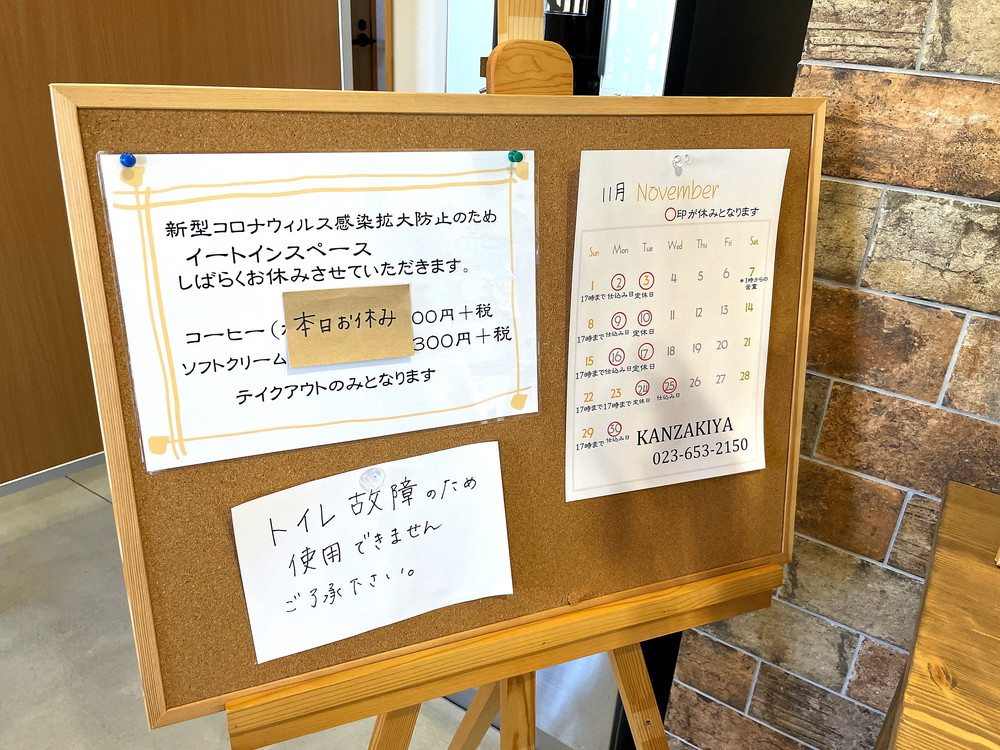 新型コロナウィルス感染拡大防止のため
イートインスペース
しばらくお休みさせていただきます。
コーヒー( 00円+税
ソフトクリーム 300円+税
本日お休み
テイクアウトのみとなります
トイレ故障のため
使用できません
ご了承下さい。
11月 November
○印が休みとなります
Sun Mon Tue Wed Thu Fri Sat
1 2 3 4 5 6 7
17時まで 仕込み日 定休日 *1時からの営業
8 9 10 11 12 13 14
17時まで 仕込み日 定休日
15 16 17 18 19 20 21
17時まで 仕込み日 定休日
22 23 24 25 26 27 28
17時まで 17時まで 定休日 仕込み日
29 30
17時まで 仕込み日
KANZAKIYA
023-653-2150